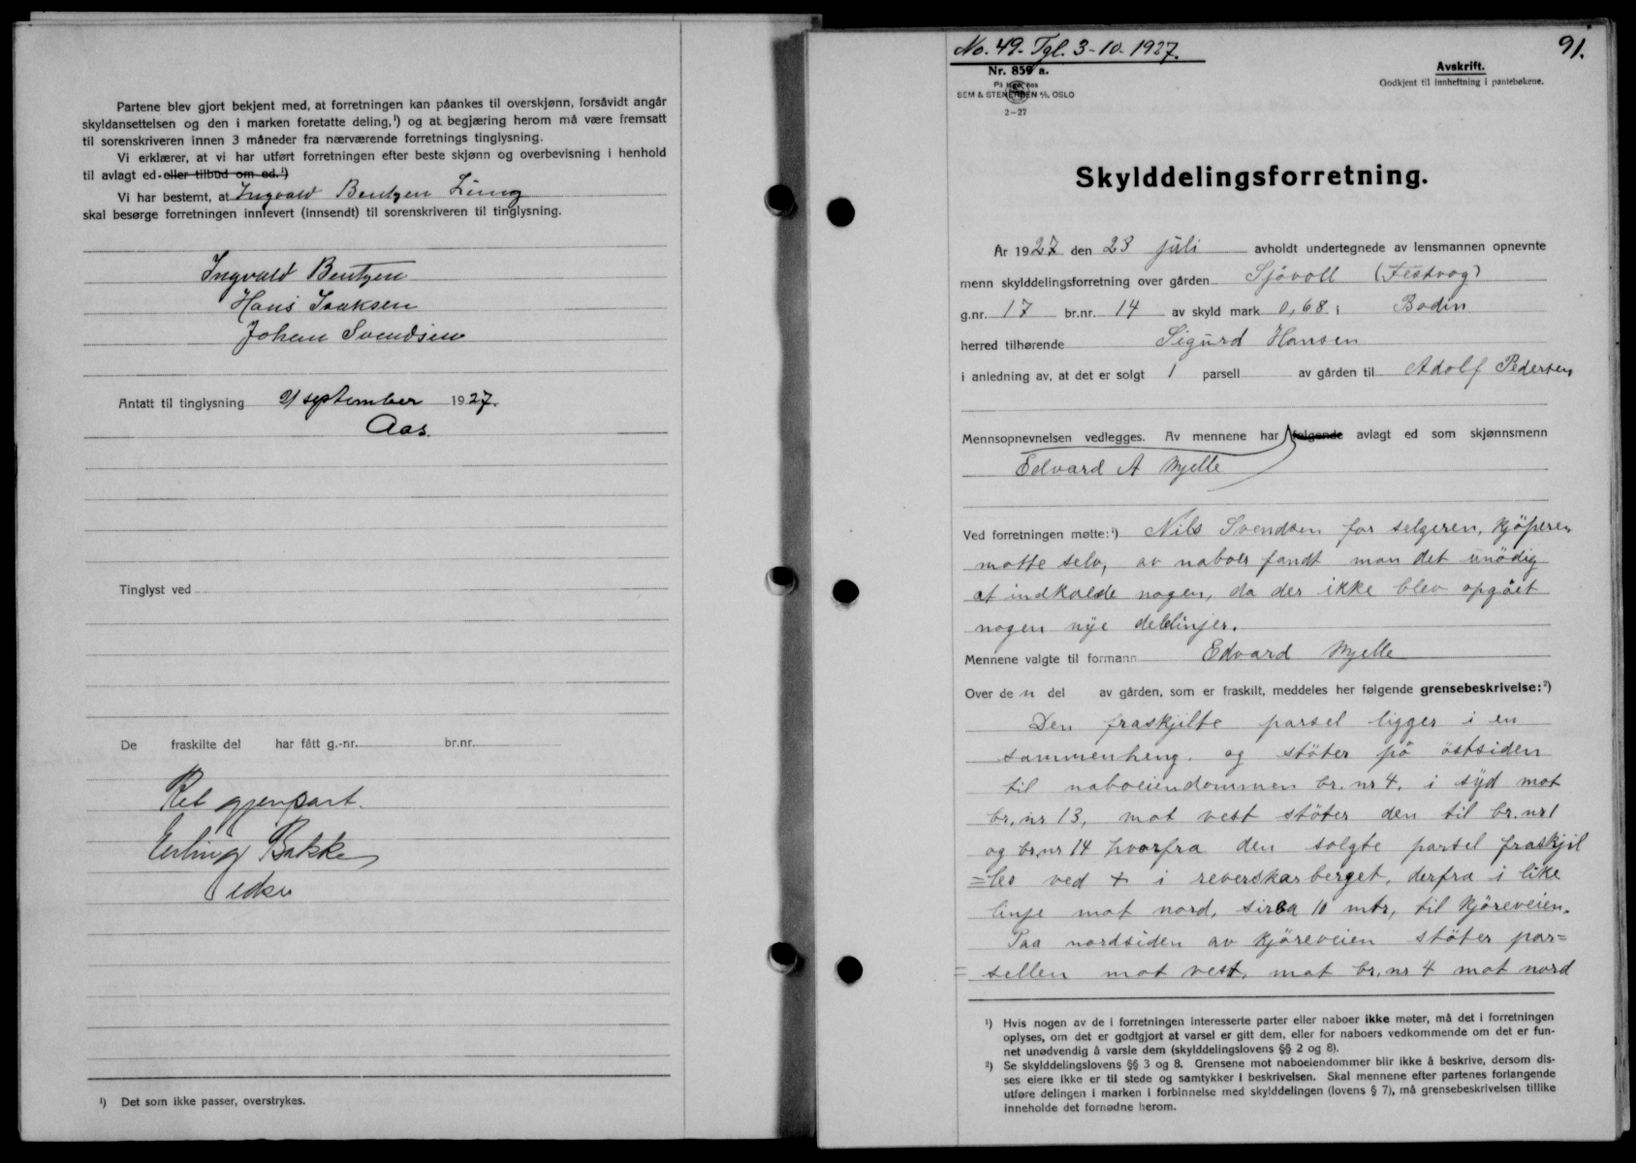 Partene blev gjort bekjent med, at forretningen kan påankes til overskjønn, forsåvidt angår
skyldansettelsen og den i marken foretatte deling,¹) og at begjæring herom må være fremsatt
til sorenskriveren innen 3 måneder fra nærværende forretnings tinglysning.
Vi erklærer, at vi har utført forretningen efter beste skjønn og overbevisning i henhold
til avlagt ed eller tilbud om ed.¹)
Vi har bestemt, at Ingvald Bentzen
skal besørge forretningen innlevert (innsendt) til sorenskriveren til tinglysning.
Ingvald Bentzen
Hans Isaksen
Johan Svendsen
Antatt til tinglysning 21 september 1927.
Aas.
Tinglyst ved
De fraskilte del har fått g.-nr. br.nr.
Ret gjenpart.
Erling Bakke
¹) Det som ikke passer, overstrykes.
No. 49. Tgl. 3-10-1927.
91.
Nr. 859 a.
På lager hos
SEM & STENERSEN A/S, OSLO
2-27
Avskrift.
Godkjent til innheftning i pantebøkene.
Skylddelingsforretning.
År 1927 den 23 juli avholdt undertegnede av lensmannen opnevnte
menn skylddelingsforretning over gården Sjövoll (Festvog)
g.nr. 17 br.nr. 14 av skyld mark 0,68 i Bodin
herred tilhørende Sigurd Hansen
i anledning av, at det er solgt 1 parsell av gården til Adolf Pedersen
Mennsopnevnelsen vedlegges. Av mennene har følgende avlagt ed som skjønnsmenn
Edvard A Mjelle
Ved forretningen møtte:¹) Nils Svendsen for selgeren, kjöperen
motte selv, av naboer fandt man det unödig
at indkalde nogen, da der ikke blev opgået
nogen nye delelinjer.
Mennene valgte til formann Edvard Mjelle
Over de n del av gården, som er fraskilt, meddeles her følgende grensebeskrivelse:²)
Den fraskjilte parsel ligger i en
sammenheng. og stöter på östsiden
til naboeiendommen br. nr 4, i syd mot
br. nr 13, mot vest stöter den til br. nr 1
og br. nr 14 hvorfra den solgte parsel fraskjil
=les ved + i reverskarberget, derfra i like
linje mot nord, sirka 10 mtr, til kjöreveien.
Paa nordsiden av kjöreveien stöter par=
=sellen mot vest, mot br. nr 4 mot nord
¹) Hvis nogen av de i forretningen interesserte parter eller naboer ikke møter, må det i forretningen
oplyses, om det er godtgjort at varsel er gitt dem, eller for naboers vedkommende om det er fun-
net unødvendig å varsle dem (skylddelingslovens §§ 2 og 8).
²) Se skylddelingslovens §§ 3 og 8. Grensene mot naboeiendommer blir ikke å beskrive, dersom dis-
ses eiere ikke er til stede og samtykker i beskrivelsen. Skal mennene efter partenes forlangende
utføre delingen i marken i forbinnelse med skylddelingen (lovens § 7), må grensebeskrivelsen tillike
inneholde det fornødne herom.